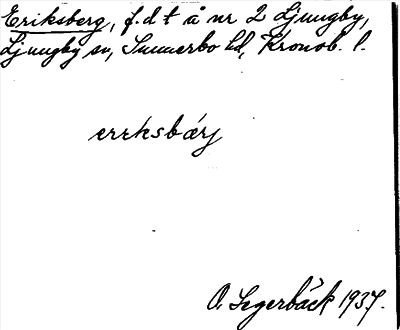 Eriksberg, f.d. t å nr 2 Ljungby,
Ljungby sn, Sunnerbo hd, Kronob. l.
erıksbærj
O. Segerbäck 1937.